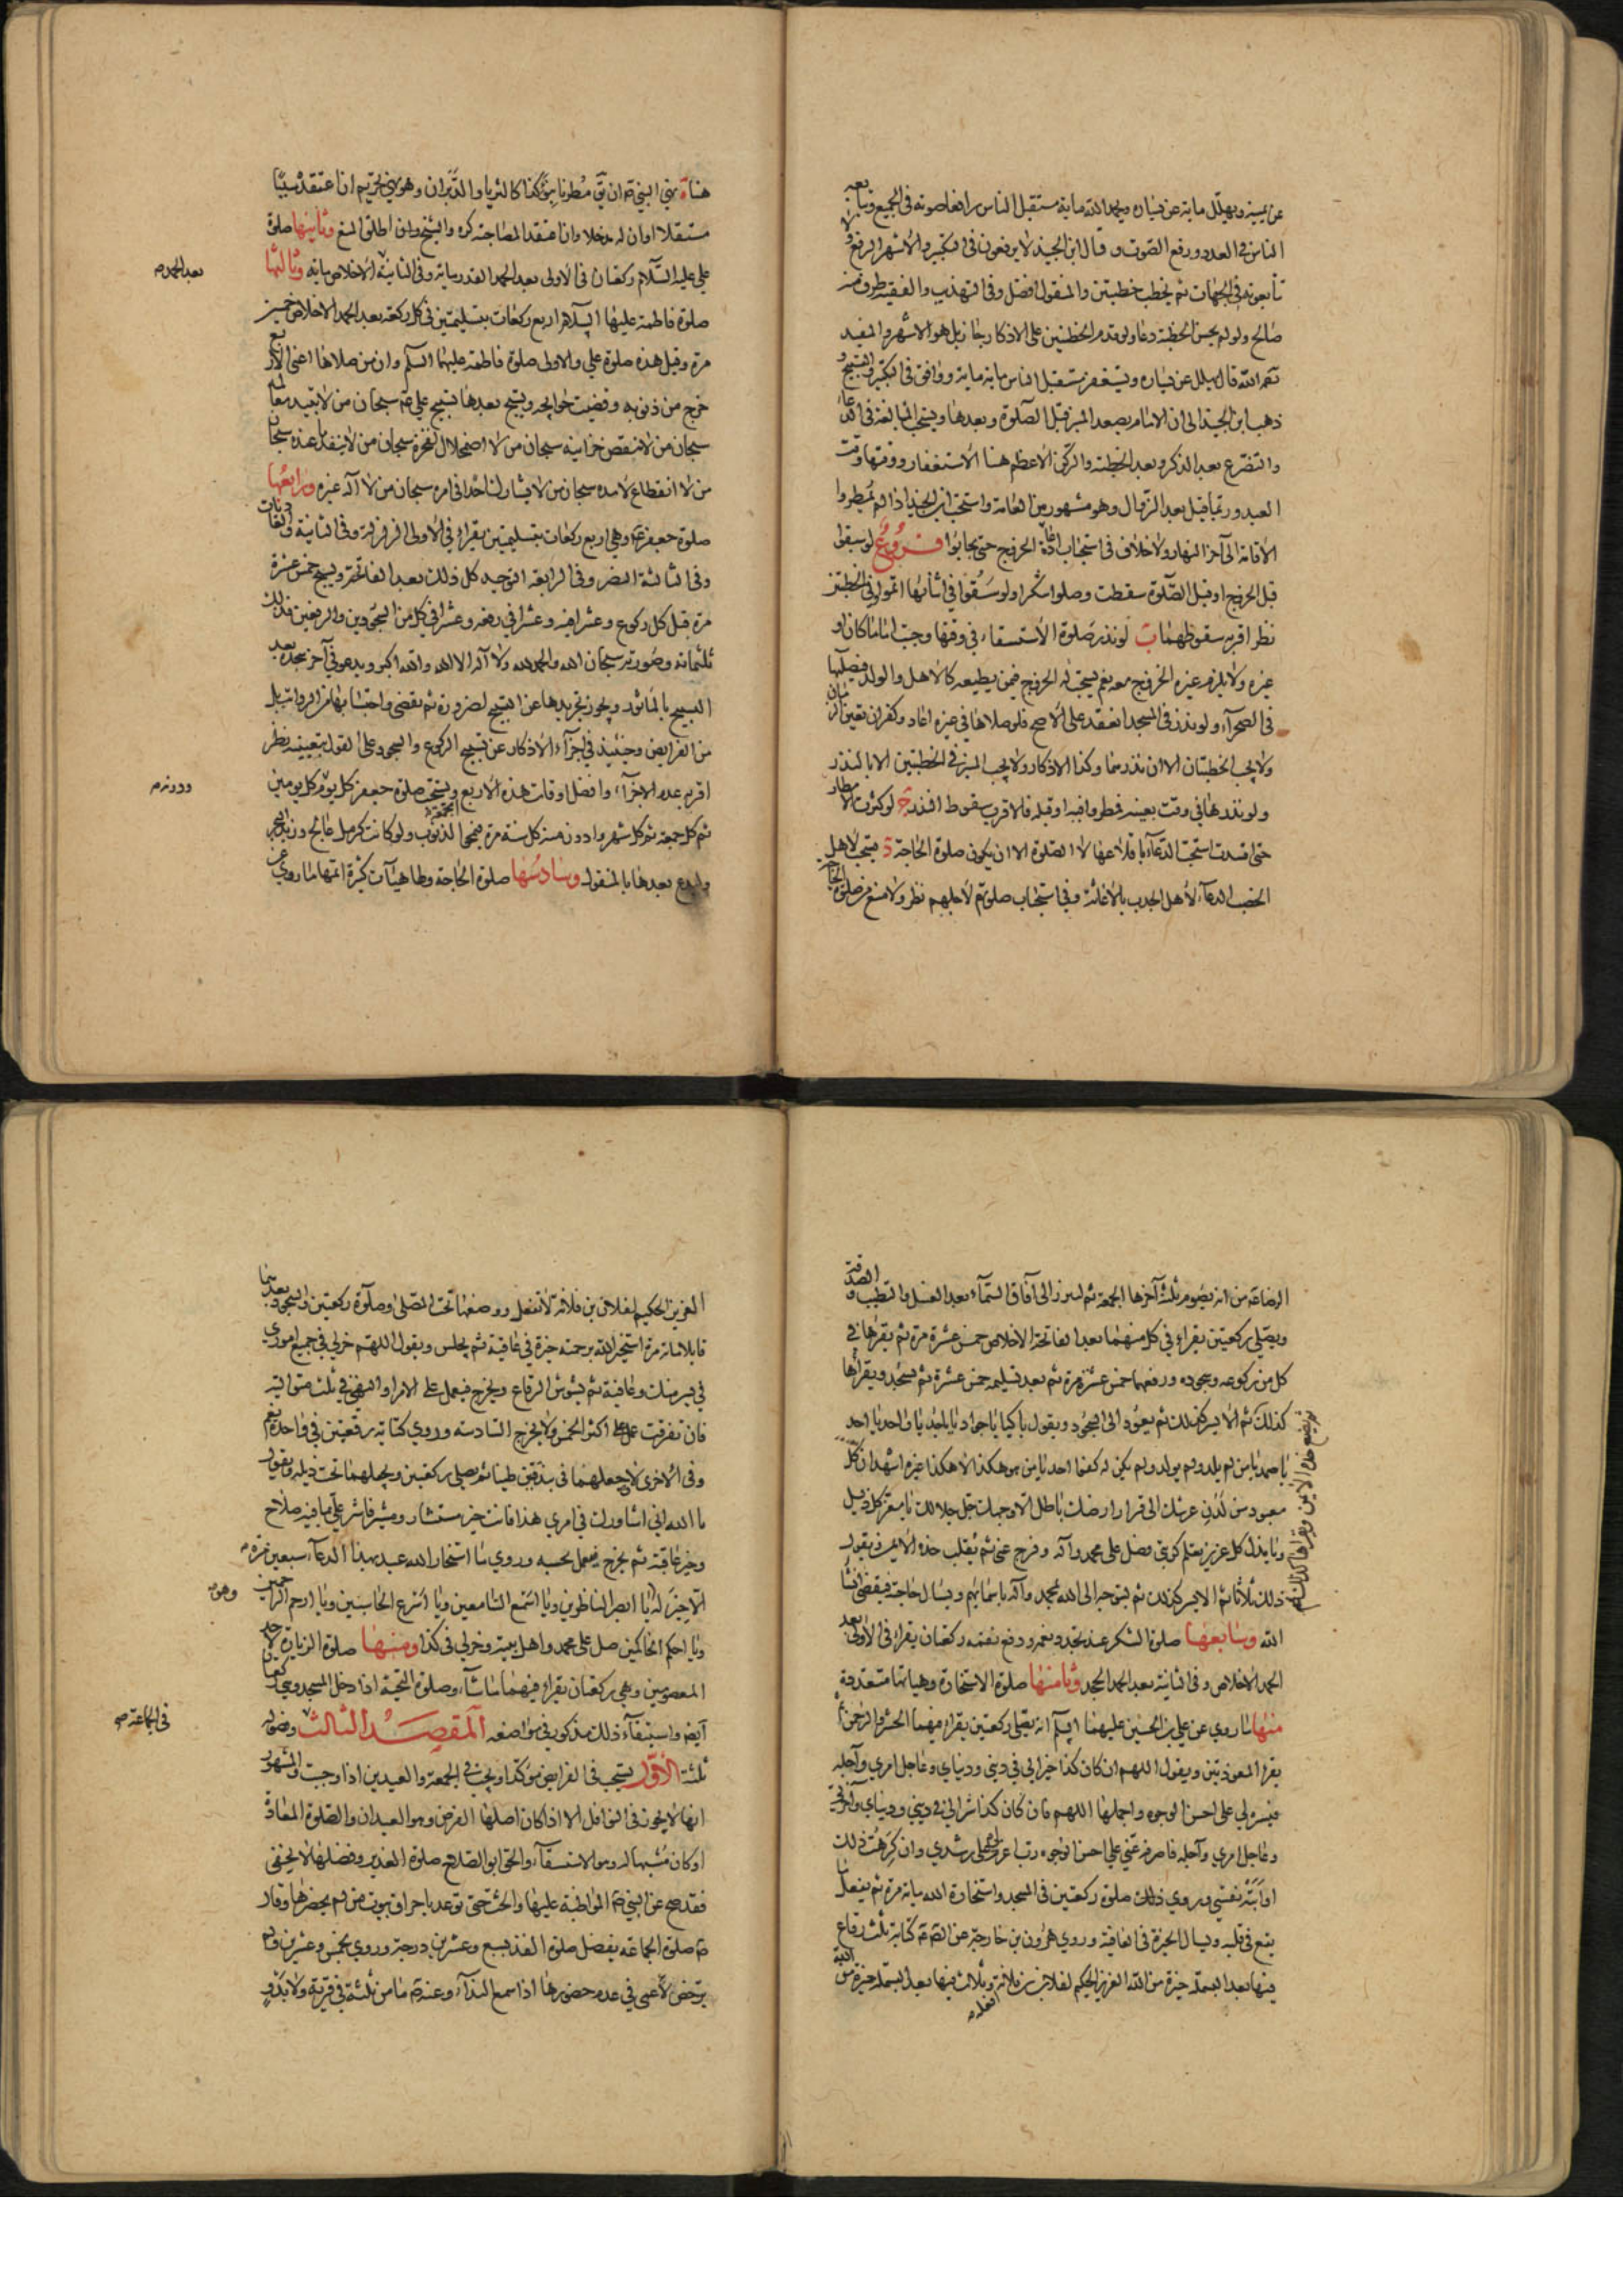 عن يمينه ويهلل مائة عن يساره ويحمد الله مائة مستقبل الناس رافعا صوته في الجميع ويتابعه
الناس في العدد ورفع الصوت وقال ابن الجنيد لا يرفعون في التكبير والأشهر الرفع و
تابعوته في الجهات ثم يخطب خطبتين والمنقول أفضل وفي التهذيب والفقيه طرف منه
صالح ولو لم يحسن الخطبة دعا ولو قدم الخطبتين على الاذكار جاز بل هو الاشهر والمفيد
قال يهلل عن يساره ويستغفر مستقبل الناس مائة مائة ووافق في التكبير والتسبيح و
ذهب ابن الجنيد الى ان الامام يصعد المنبر قبل الصلوة وبعدها ويستحب المبالغة في الدعاء
والتضرع بعد الذكر وبعد الخطبة والركن الاعظم هنا الاستغفار ووقتها وقت
العيد وربما قيل بعد الزوال وهو مشهور بين العامة واستحب ابن الجنيد اذا لم يمطروا
الاقامة الى آخر النهار ولا خلاف في استحباب اعادة الخروج حتى يجابوا فروع لو سقوا
قبل الخروج او قبل الصلوة سقطت وصلوا شكرا ولو سقوا في اثنائها اتموا وفي الخطبتين
نظر اقربه سقوطهما ب لو نذر صلوة الاستسقاء في وقتها وجبت اماما كان او
غيره ولا يلزم غيره الخروج معه نعم يستحب له الخروج فيمن يطيعه كالاهل والولد فيصليها
في الصحراء ولو نذر في المسجد انعقد على الاصح فلو صلاها في غيره اعاد وكفر ان تعين الزمان
ولا يجب الخطبتان الا ان نذرهما وكذا الاذكار ولا يجب المنبر في الخطبتين الا بالنذر
ولو نذرها في وقت بعينه فمطروا فيه او قبله فالاقرب سقوط النذر ج لو كثرت الامطار
حتى افسدت استحب الدعاء باقلاعها لا الصلوة الا ان يكون صلوة الحاجة د يستحب لاهل
الخصب الدعاء لاهل الجدب بالاغاثة وفي استحباب صلوتهم لاجلهم نظر ولا منع من صلوة الحاجة
هنا نهى النبي ان يق مطرنا بنوء كذا كالثريا والدبران وهو نهي تحريم ان اعتقده سببا
مستقلا او ان له مدخلا وان اعتقد المصاحبة كره والشيخ وابن اطلقا المنع وثانيها صلوة
علي عليه السلام ركعتان في الاولى بعد الحمد القدر مائة وفي الثانية الاخلاص مائة وثالثها
بعد الحمد
صلوة فاطمة عليها السلام اربع ركعات بتسليمتين في كل ركعة بعد الحمد الاخلاص خمسين
مرة وقيل هذه صلوة علي والاولى صلوة فاطمة عليها السلم وان من صلاها اعني الاربع
خرج من ذنوبه وقضيت حوائجه ويسبح بعدها تسبيح علي سبحان من لا تبيد معالمه
سبحان من لا تنقص خزائنه سبحان من لا اضمحلال لفخره سبحان من لا ينفد ما عنده سبحان
من لا انقطاع لامده سبحان من لا يشارك احدا في امره سبحان من لا اله غيره ورابعها
صلوة جعفر وهي اربع ركعات بتسليمتين يقرأ في الاولى الزلزلة وفي الثانية والعاديات
وفي الثالثة النصر وفي الرابعة التوحيد كل ذلك بعد الفاتحة ويسبح خمس عشرة
مرة قبل كل ركوع وعشرا فيه وعشرا في رفعه وعشرا في كل من السجودين والرفعين فذلك
ثلثمائة وصورته سبحان الله والحمد لله ولا اله الا الله والله اكبر ويدعو في آخر سجدة بعد
التسبيح بالمأثور ويجوز تجريدها عن التسبيح لضرورة ثم يقضى واحتسابها من الرواتب بل
من الفرايض وحينئذ في اجزاء الاذكار عن تسبيح الركوع والسجود على القول بتعيينه نظر
اقربه عدم الاجزاء وافضل اوقات هذه الاربع الجمعة ويستحب صلوة جعفر كل يوم كل يومين
ثم كل جمعة ثم كل شهر وادون منه كل سنة مرة فيمحى الذنوب ولو كانت كرمل عالج وزبد البحر
وليدع بعدها بالمنقول وسادسها صلوة الحاجة ولها هيئات كثيرة اتمها ما روي عن
الرضا من انه يصوم ثلثا آخرها الجمعة ثم ليبرز الى آفاق السماء بعد الغسل والتطيب والصدقة
ويصلي ركعتين يقرأ في كل منهما بعد الفاتحة الاخلاص خمس عشرة مرة ثم يقرأها في
كل من ركوعه وسجوده ورفعهما خمس عشرة مرة ثم بعد تسليمه خمس عشرة ثم يسجد ويقرأها
ثم يضع خده الايمن ويقرأها كذلك
كذلك ثم الايسر كذلك ثم يعود الى السجود ويقول باكيا يا جواد يا ماجد يا واحد يا احد
يا صمد يا من لم يلد ولم يولد ولم يكن له كفوا احد يا من هو هكذا لا هكذا غيره اشهد ان كل
معبود من لدن عرشك الى قرار ارضك باطل الا وجهك جل جلالك يا معز كل ذليل
ويا مذل كل عزيز تعلم كربتي فصل على محمد وآله وفرج عني ثم يقلب خده الايمن ويقول
ذلك ثلاثا ثم الايسر كذلك ثم يتوجه الى الله بمحمد وآله باسمائهم ويسأل حاجته فيقضى انشاء
الله وسابعها صلوة الشكر عند تجدد نعمة ودفع نقمة ركعتان يقرأ في الاولى بعد
الحمد الاخلاص وفي الثانية بعد الحمد الجحد وثامنها صلوة الاستخارة وهيئاتها متعددة
منها ما روي عن علي بن الحسين عليهما السلم انه يصلي ركعتين يقرأ فيهما الحشر والرحمن ثم
يقرأ المعوذتين ويقول اللهم ان كان كذا خيرا لي في ديني ودنياي وعاجل امري وآجله
فيسره لي على احسن الوجوه واجملها اللهم فان كان كذا شرا لي في ديني ودنياي وآخرتي
وعاجل امري وآجله فاصرفه عني على احسن الوجوه رب اعزم لي على رشدي وان كرهت ذلك
او ابته نفسي وروي صلوة ركعتين في المسجد واستخارة الله مائة مرة ثم يفعل ما
يقع في قلبه ويسأل الخيرة في العافية وروي هرون بن خارجة عن الصادق كتابة ثلث رقاع
فيها بعد البسملة خيرة من الله العزيز الحكيم لفلان بن فلانة وثلاث فيها بعد البسملة خيرة من الله
افعله
العزيز الحكيم لفلان بن فلانة لا تفعل ووضعها تحت المصلى وصلوة ركعتين والسجود بعدهما
قايلا مائة مرة استخير الله برحمته خيرة في عافية ثم يجلس ويقول اللهم خر لي في جميع اموري
في يسر منك وعافية ثم يشوش الرقاع ويخرج فيعمل على الامر او النهي في ثلث متوالية
فان تفرقت عمل على اكثر الخمس ولا يخرج السادسة وروي كتابة رقعتين في واحدة نعم
وفي الاخرى لا وجعلهما في بندقتين طينا ثم يصلي ركعتين ويجعلهما تحت ذيله ويقول
يا الله اني اشاورك في امري هذا فانت خير مستشار ومشير فاشر علي بما فيه صلاح
وخير عاقبة ثم يخرج فيعمل بحسبه وروي ما استخار الله عبد بهذا الدعاء سبعين مرة
وهو
الا خير له يا ابصر الناظرين ويا اسمع السامعين ويا اسرع الحاسبين ويا ارحم الراحمين
ويا احكم الحاكمين صل على محمد واهل بيته وخر لي في كذا ومنها صلوة الزيارة لاحد
المعصومين وهي ركعتان يقرأ فيهما ما شاء وصلوة التحية اذا دخل المسجد وهي ركعتان
ايضا واستيفاء ذلك مذكور في مواضعه المقصد الثالث وفصوله
في الجماعة
ثلثة الاول تستحب في الفرايض مؤكدا ويجب في الجمعة والعيدين اذا وجبت والمشهور
انها لا يجوز في النوافل الا اذا كان اصلها الفرض وهو العيدان والصلوة المعادة
او كان مشبها له وهو الاستسقاء والحق ابو الصلاح صلوة الغدير وفضلها لا يخفى
فقد صح عن النبي المواظبة عليها والحث حتى توعد باحراق بيوت من لم يحضرها وقال
صلوة الجماعة يفضل صلوة الفذ بسبع وعشرين درجة وروي بخمس وعشرين ولم
يرخص لاعمى في عدم حضورها اذا سمع النداء وعنه ما من ثلثة في قرية ولا بدو